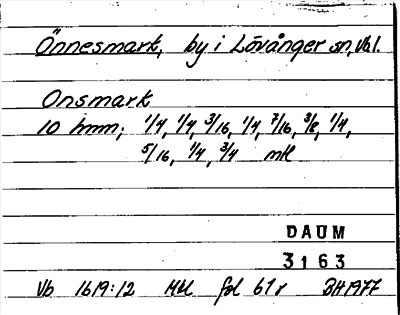 Önnesmark, by i Lövånger sn, Vbl.
Onsmark
10 hmn; 1/4, 1/4, 3/16, 1/4, 7/16, 3/8, 1/4,
5/16, 1/4, 3/4 mtl
DAUM
3163
Vb 1619:12 Mtl fol 61r BH 1977